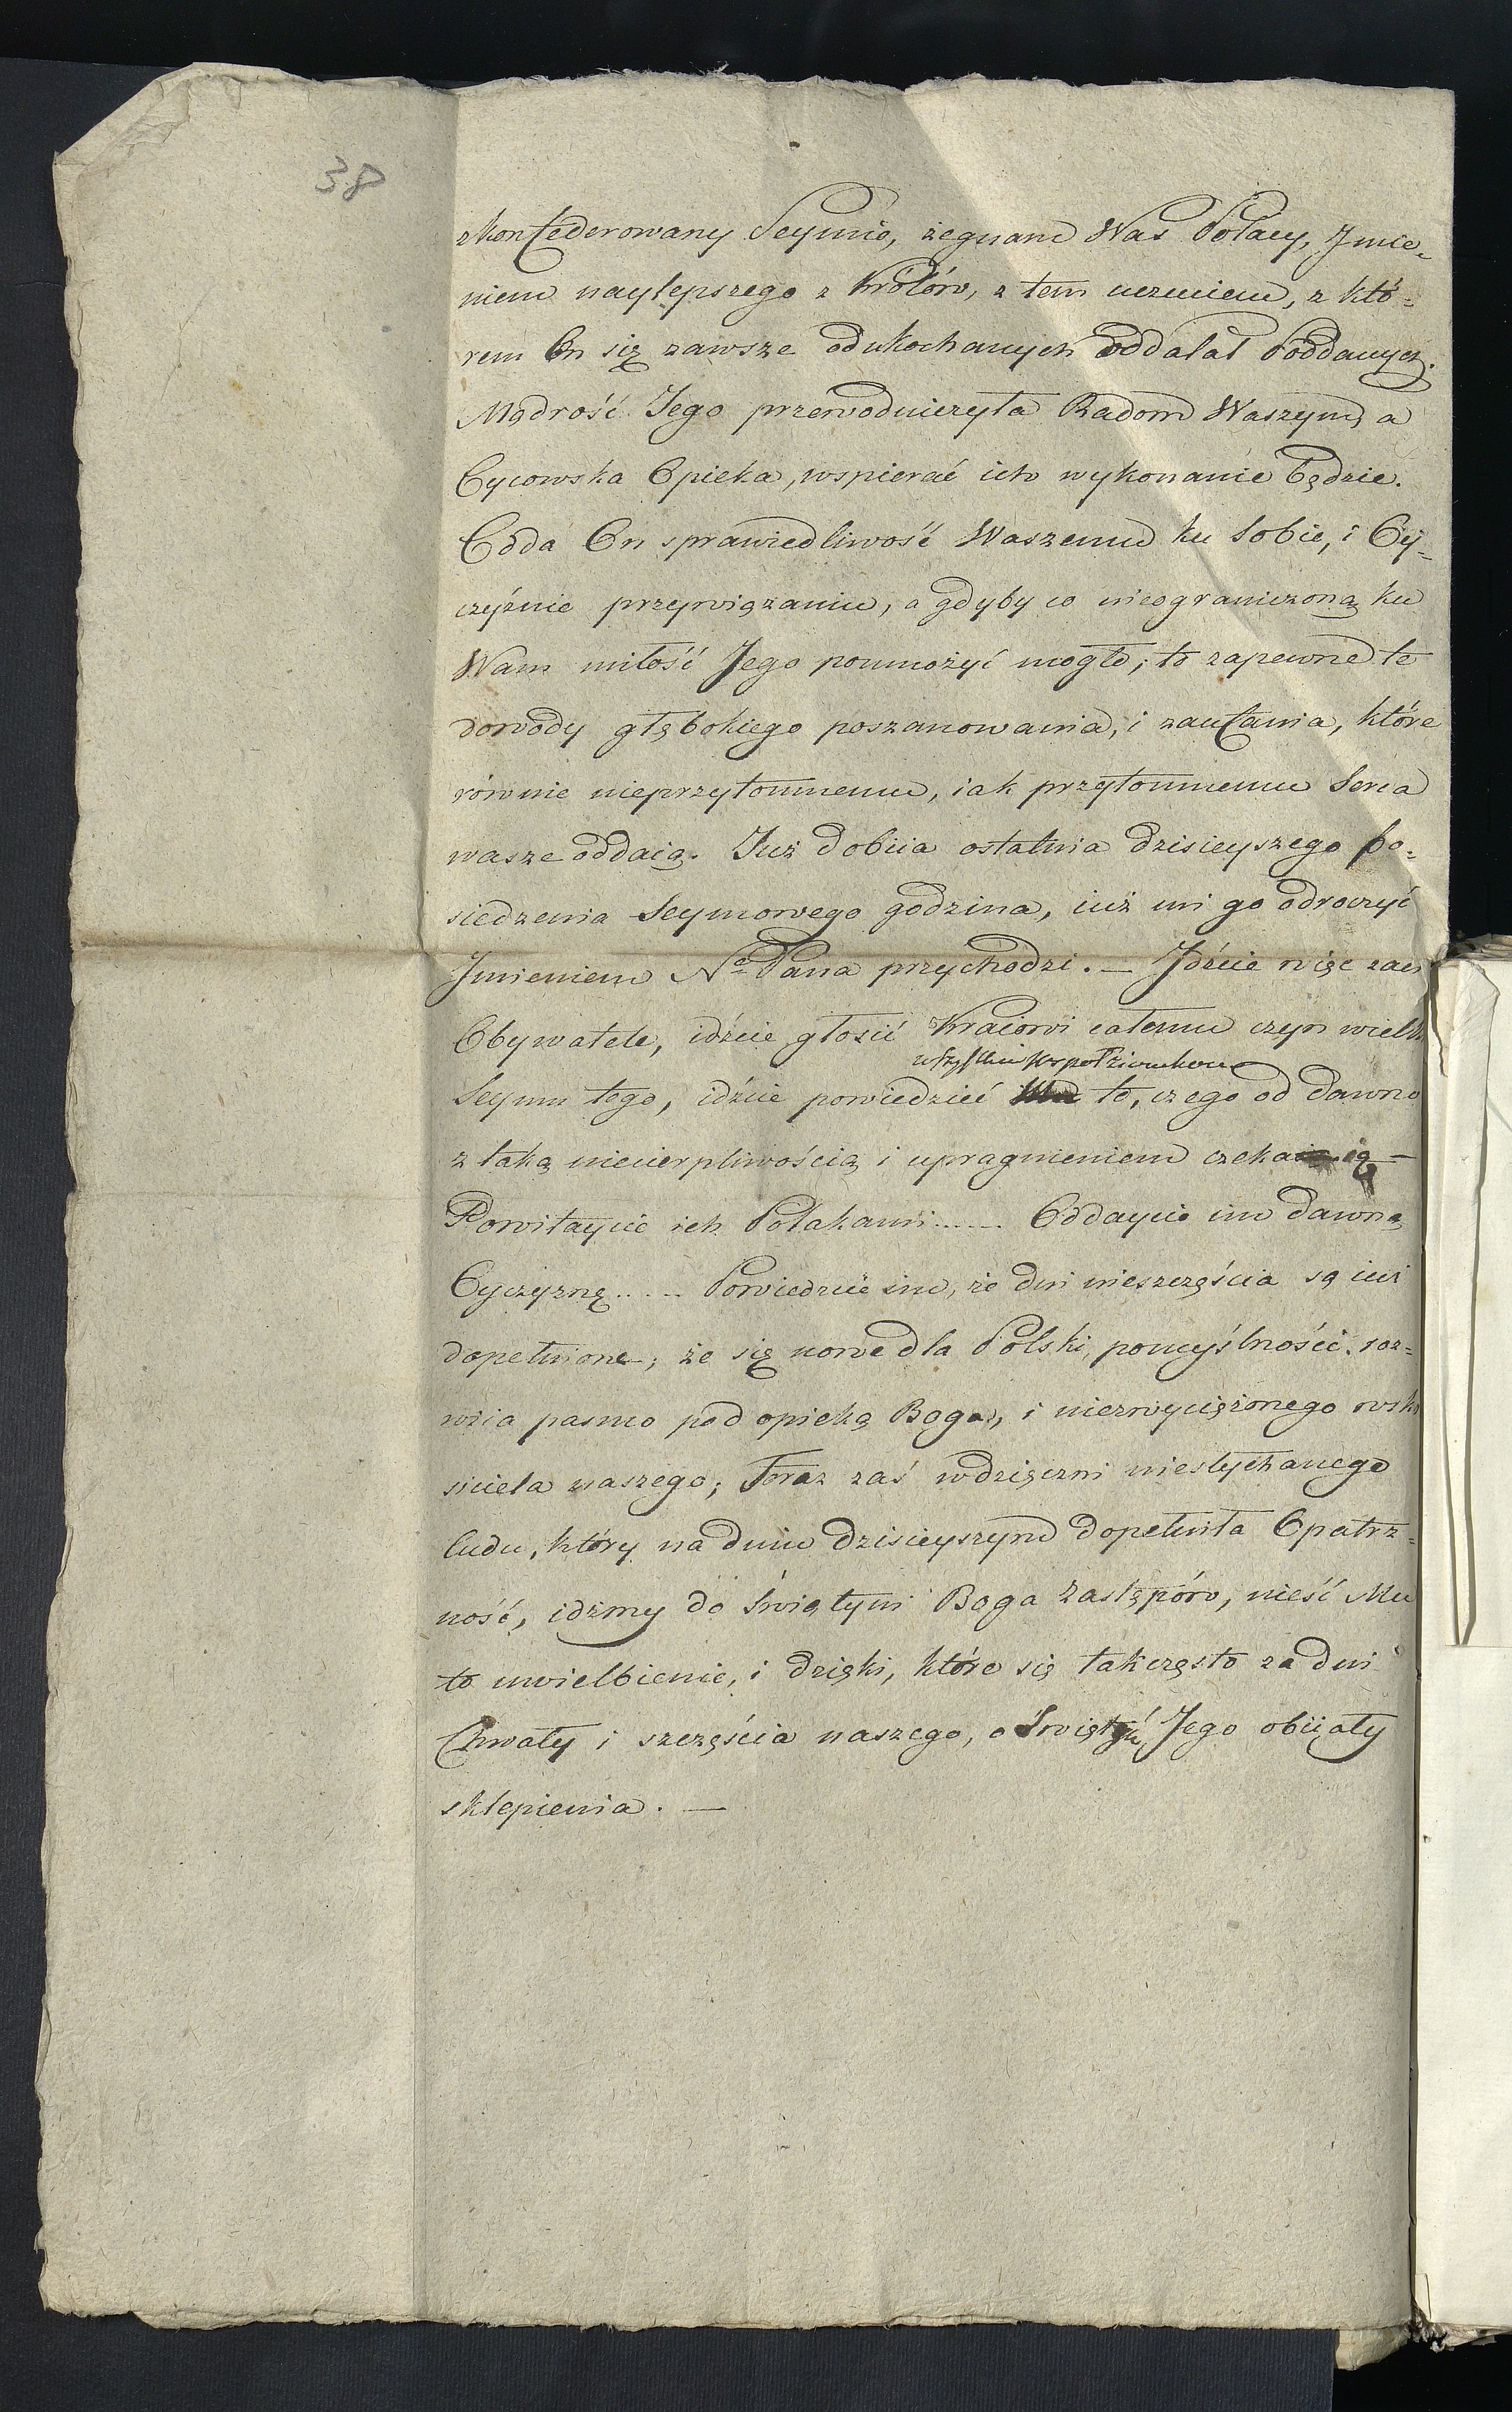 38
zkonfederowany Seymie, żegnam Was Polacy, Jmie=
niem naylepszego z Królów, z tem uczuciem, z któ=
rem On się zawsze od ukochanych oddalał Poddanych.
Mądrość Jego przewodniczyła Radom Waszym, a
Oycowska Opieka, wspierać ich wykonanie będzie.
Odda On sprawiedliwość Waszemu ku Sobie, i Oy=
czyźnie przywiązaniu, a gdyby co nieograniczoną ku
Wam miłość Jego pomnożyć mogło, to zapewne te
dowody głębokiego poszanowania, i zaufania, które
równie nieprzytomnemu, iak przytomnemu Serca
wasze oddaią. Już dobiia ostatnia dzisieyszego po=
siedzenia Seymowego godzina, iuż mi go odroczyć
Jmieniem N° Pana przychodzi. — Jdźcie więc zacni
Obywatele, idźcie głosić Kraiowi całemu czyn wielki
wszystkim współziomkom
Seymu tego, idźcie powiedzieć to, czego od dawna
z taką niecierpliwością i upragnieniem czekaią —
Powitaycie ich Polakami...... Oddaycie im dawną
Oyczyznę...... Powiedzcie im, że dni nieszczęścia są iuż
dopełnione, że się nowe dla Polski, pomyślności roz=
wiia pasmo pod opieką Boga, i niezwycięzonego wskrze
siciela naszego; Teraz zaś wdzięczni niesłychanego
cudu, który na dniu dzisieyszym dopełniła Opatrz=
ność, idźmy do świątyni Boga Zastępów, nieść Mu
to uwielbienie, i dzięki, które się tak często za dni
Chwały i szczęścia naszego, o Świątyń Jego obiiały
sklepienia. —